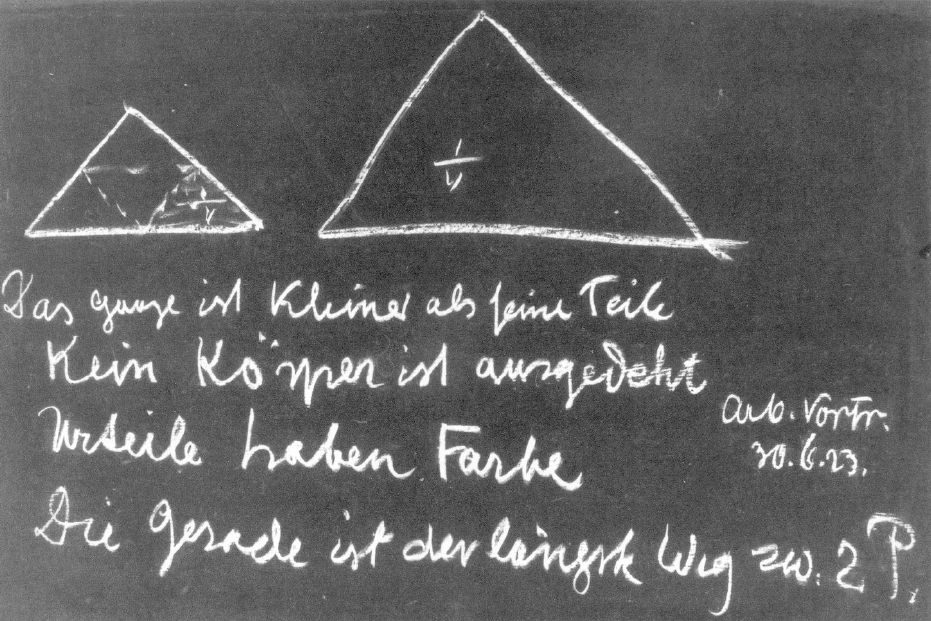 1/4
1/4
Das ganze ist Kleiner als seine Teile
Kein Körper ist ausgedeht
Urteile haben Farbe
Arb. Vortr.
30.6.23.
Die Gerade ist der längste Weg zw. 2 P.